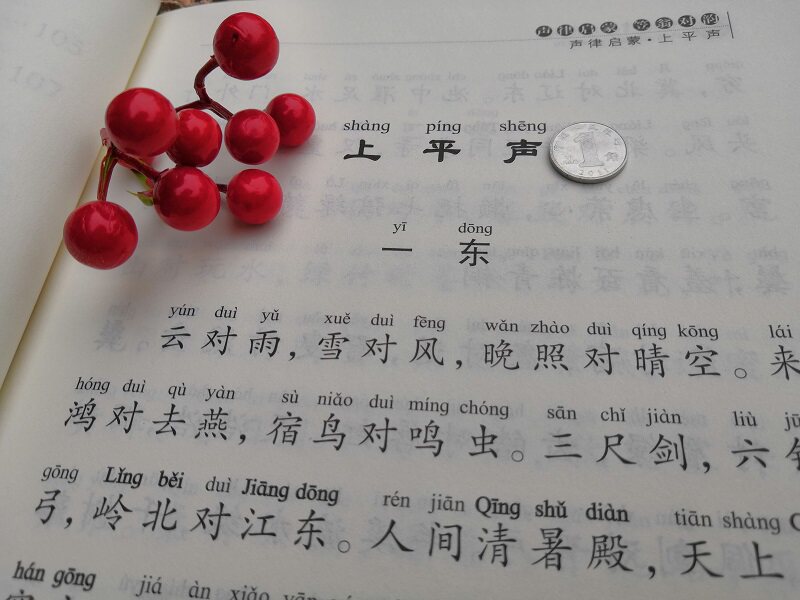 声律启蒙 笠翁对韵
声律启蒙·上平声
shàng píng shēng
上平声
yī dōng
一东
yún duì yǔ xuě duì fēng wǎn zhào duì qíng kōng lái
云对雨，雪对风，晚照对晴空。来
hóng duì qù yàn sù niǎo duì míng chóng sān chǐ jiàn liù
鸿对去燕，宿鸟对鸣虫。三尺剑，六
gōng Lǐng běi duì Jiāng dōng rén jiān Qīng shǔ diàn tiān shàng
弓，岭北对江东。人间清暑殿，天上
hán gōng jiá àn xiǎo yān